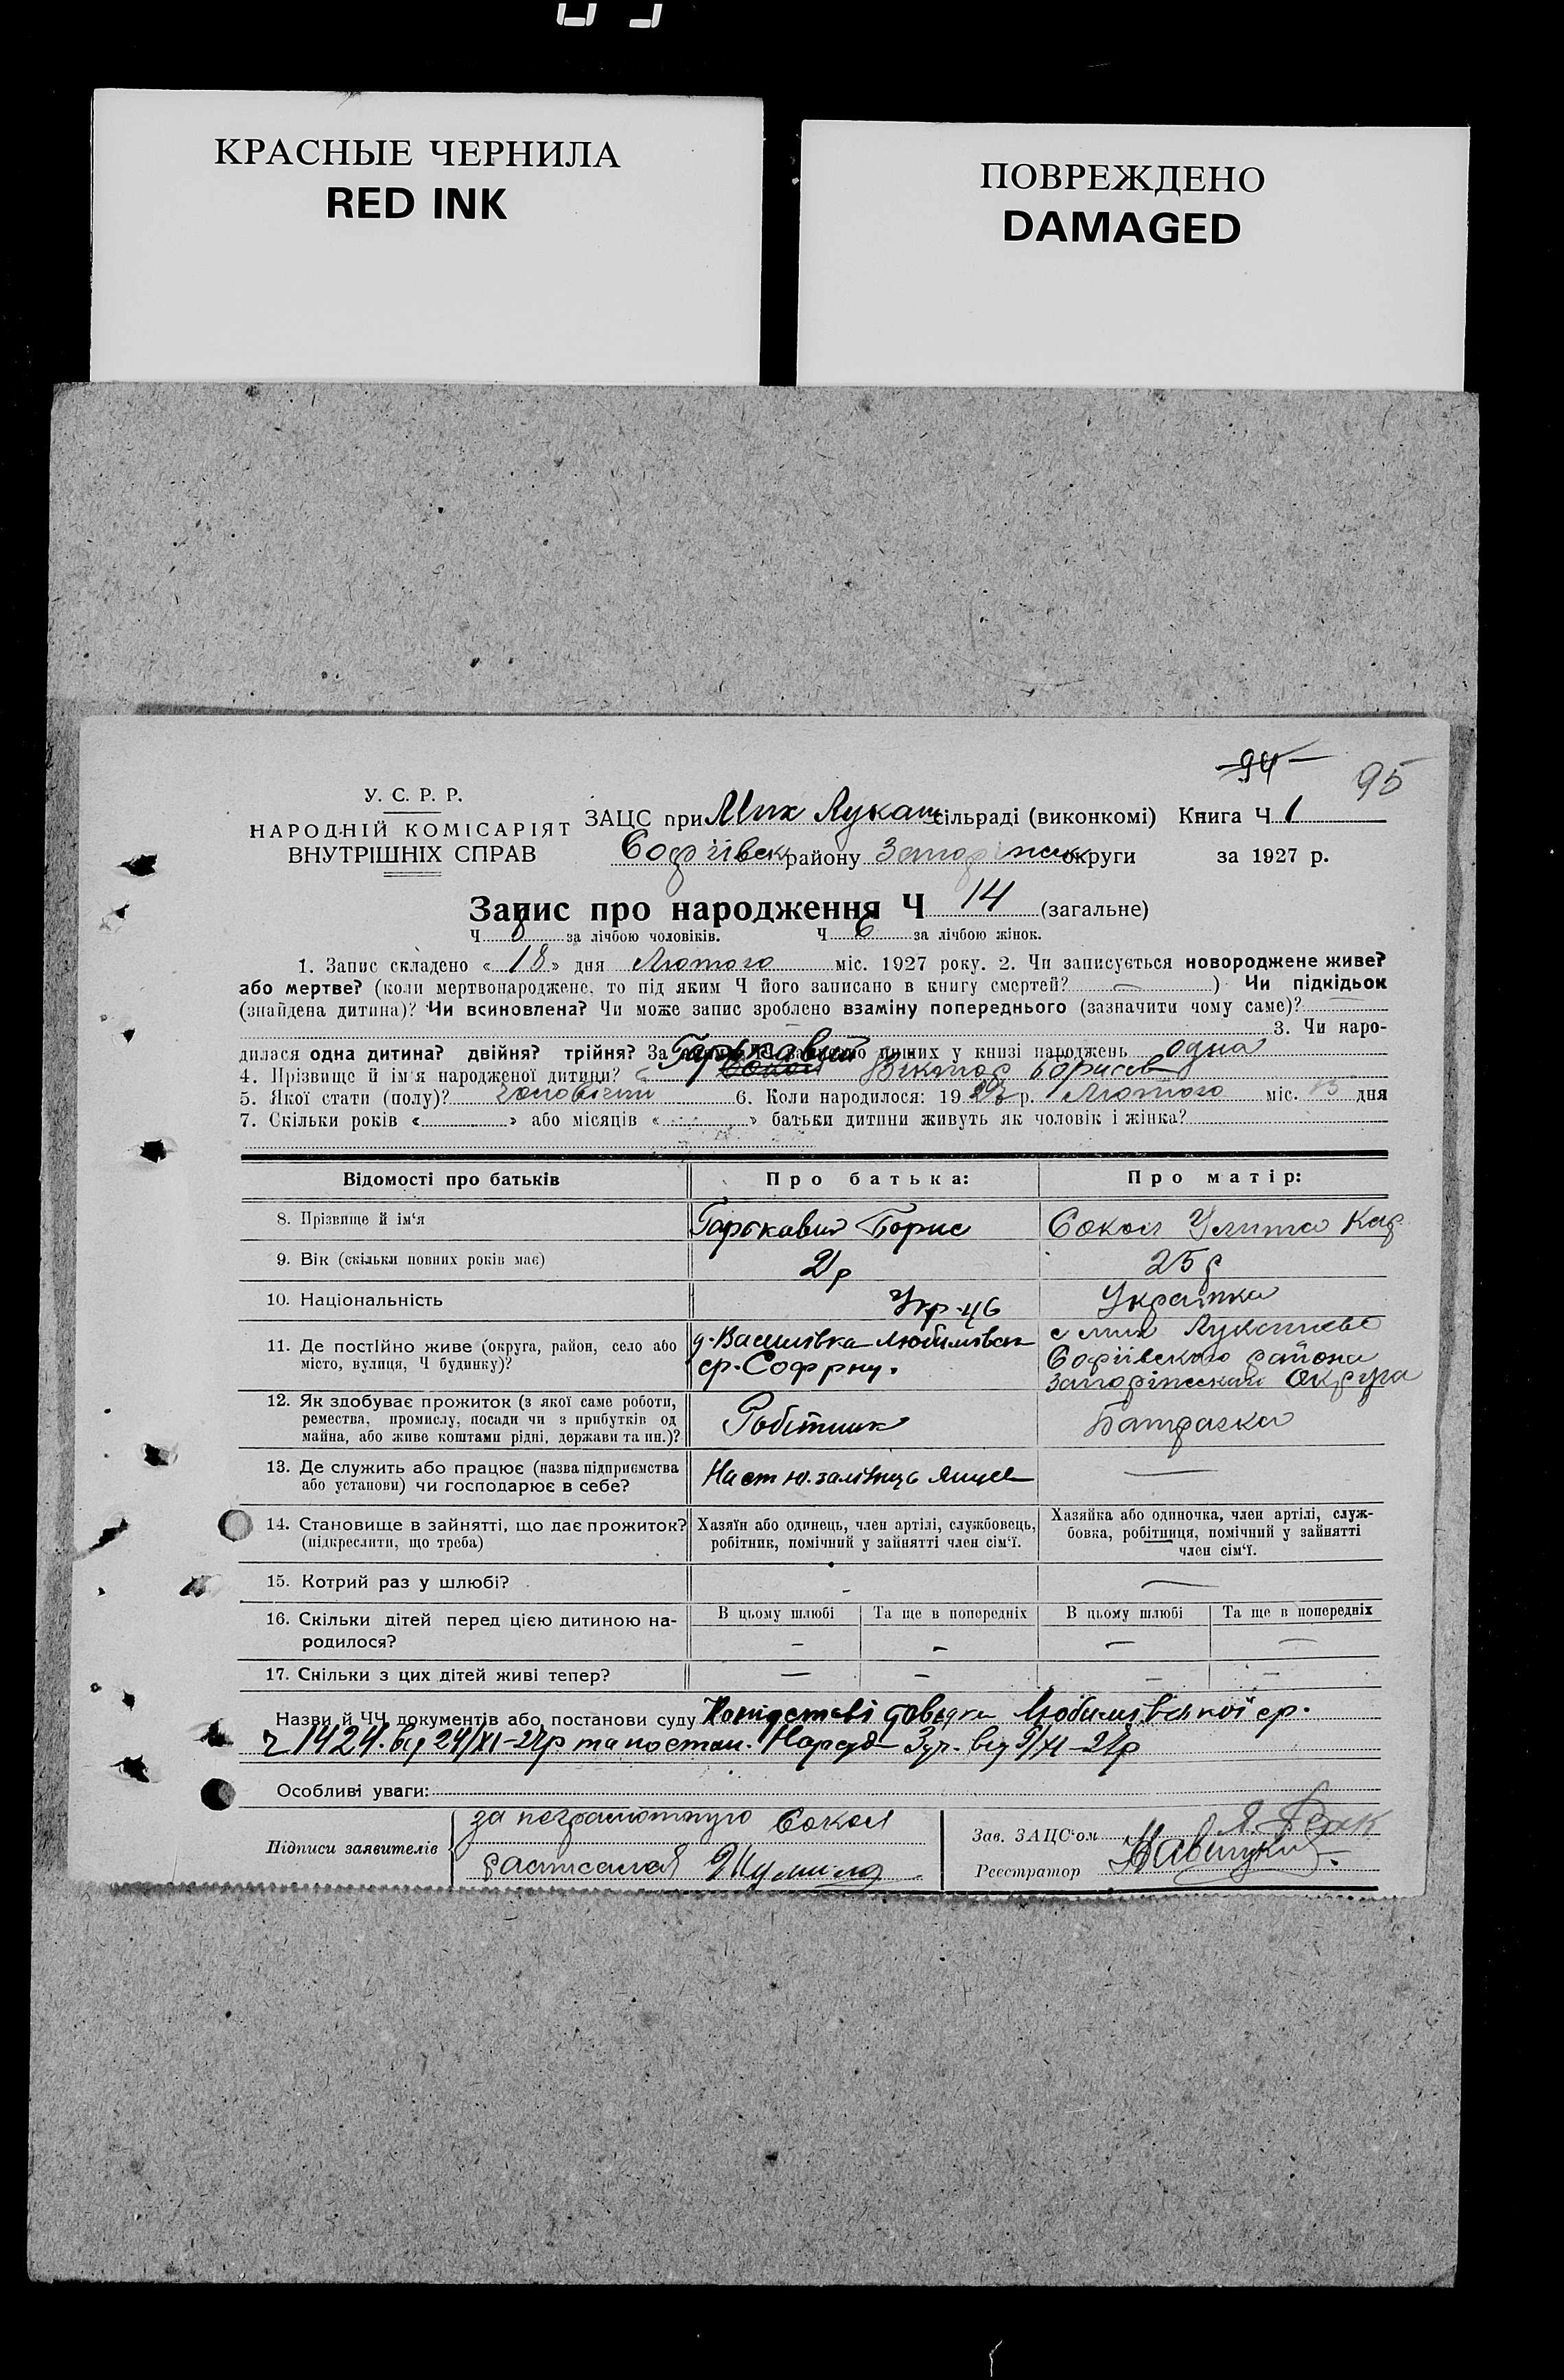 КРАСНЫЕ ЧЕРНИЛА
RED INK
ПОВРЕЖДЕНО
DAMAGED
94
95
У. С. Р. Р.
НАРОДНІЙ КОМІСАРІЯТ
ВНУТРІШНІХ СПРАВ
ЗАЦС при Мих Лукаш сільраді (виконкомі) Книга Ч 1
Софіївськ району Запоріжськ округи за 1927 р.
Запис про народження Ч 14 (загальне)
Ч 8 за лічбою чоловіків. Ч 6 за лічбою жінок.
1. Запис складено « 18 » дня Лютого міс. 1927 року. 2. Чи записується новороджене живе?
або мертве? (коли мертвонароджене, то під яким Ч його записано в книгу смертей? — ) Чи підкідьок
(знайдена дитина)? Чи всиновлена? Чи може запис зроблено взаміну попереднього (зазначити чому саме)?
3. Чи наро-
дилася одна дитина? двійня? трійня? За яким Ч записано инших у книзі народжень одна
4. Прізвище й ім'я народженої дитини? Гаркавий Сокол Віктор Борисов
5. Якої стати (полу)? Чоловічий 6. Коли народилося: 1927 р. Лютого міс. 13 дня
7. Скільки років « » або місяців « » батьки дитини живуть як чоловік і жінка?
Відомості про батьків Про батька: Про матір:
8. Прізвище й ім'я Гаркавий Борис Сокол Улита Кар
9. Вік (скільки повних років має) 21 р 25 р
10. Національність Укр-ць Українка
11. Де постійно живе (округа, район, село або місто, вулиця, Ч будинку)?
д. Василівка Любимівськ
ср. Соф рну.
с мих Лукашеве
Софіївського района
Запоріжской Округа
12. Як здобуває прожиток (з якої саме роботи, ремества, промислу, посади чи з прибутків од майна, або живе коштами рідні, держави та ин.)?
Робітник Батрачка
13. Де служить або працює (назва підприємства або установи) чи господарює в себе?
На ст ю. залізниць —
14. Становище в зайнятті, що дає прожиток? (підкреслити, що треба)
Хазяїн або одинець, член артілі, службовець, робітник, помічний у зайнятті член сім'ї.
Хазяйка або одиночка, член артілі, служ-
бовка, робітниця, помічний у зайнятті
член сім'ї.
15. Котрий раз у шлюбі? - —
16. Скільки дітей перед цією дитиною на-
родилося?
В цьому шлюбі Та ще в попередніх В цьому шлюбі Та ще в попередніх
— — — —
17. Скільки з цих дітей живі тепер? — — — —
Назви й ЧЧ документів або постанови суду На підставі довідки Любимівської ср.
ч 1424. від 24/XI-27р. та постан. Нарсуд від 9/XI-27р
Особливі уваги:
Підписи заявителів
за неграмотную Сокол
расписался Шумило
Зав. ЗАЦС'ом
Реєстратор